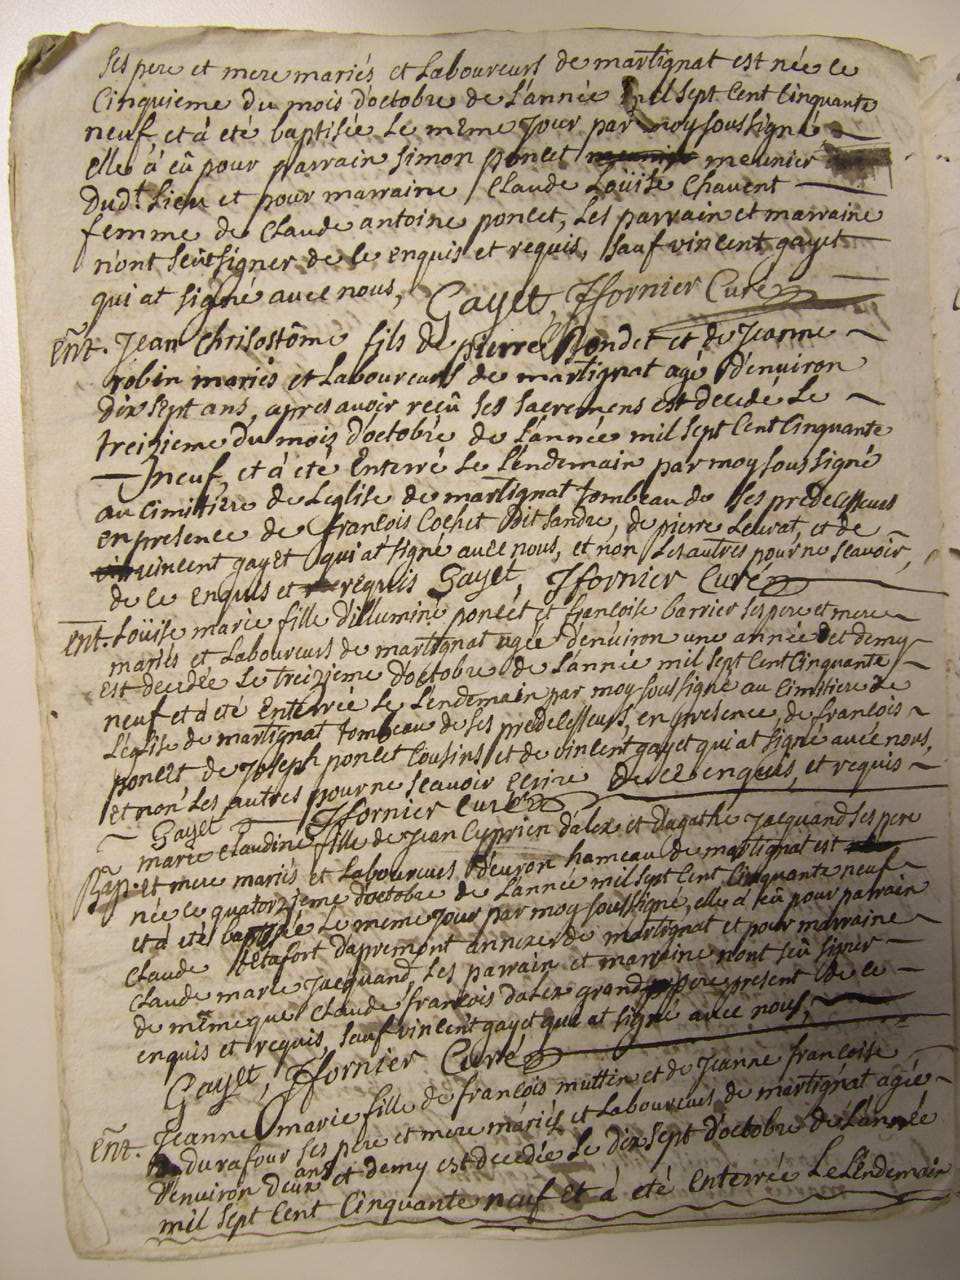 ses pere et mere mariés et Laboureurs de martignat est née le
Cinquieme du mois d'octobre de L'année mil sept Cent Cinquante
neuf, et à eté baptisée Le meme Jour par moy soussigné
elle à eû pour parrain simon poncet meunier
dud.t Lieu et pour marraine Claude Loüise Chavent
femme de Claude antoine poncet, Les parrain et marraine
n'ont seû signer de ce enquis et requis, sauf vincent gayet
qui at signé avec nous, Gayet, Jfornier Curé
Ent. Jean Chrisostôme fils de pierre Rondet et de Jeanne
robin mariés et Laboureurs de martignat agé d'environ
dix sept ans, apres avoir reçû ses sacremens est decedé Le
treizieme du mois d'octobre de L'année mil sept Cent Cinquante
neuf, et à eté Enterré Le Lendemain par moy soussigné
au Cimittiere de L'eglise de martignat tombeau de ses predecesseurs
en presence de françois Cochet dit Sandre, de pierre Levrat, et de
vincent gayet qui at signé avec nous, et non Les autres pour ne scavoir,
de ce Enquis et requis Gayet, Jfornier Curé
Ent. Loüise marie fille d'illuminé poncet et françoise barrier ses pere et mere
mariés et Laboureurs de martignat agée d'environ une année et demy
est decedée Le treizieme d'octobre de L'année mil sept Cent Cinquante
neuf et à eté Enterrée Le Lendemain par moy soussigné au Cimittiere de
L'eglise de martignat tombeau de ses predecesseurs, en presence, de françois
poncet de Joseph poncet Cousins et de vincent gayet qui at signé avec nous,
et non Les autres pour ne scavoir Ecrire de ce enquis, et requis
Gayet Jfornier Curé
marie Claudine fille de Jean Cyprien dalex et d'agathe Jacquand ses pere
Bap. et mere mariés et Laboureurs d'evron hameau de martignat est
née le quatorzieme d'octobre de L'année mil sept Cent Cinquante neuf
et à eté baptisée Le meme Jour par moy soussigné, elle à eû pour parrain
Claude betafort d'apremont annexe de martignat et pour marraine
Claude marie Jacquand, Les parrain et marraine n'ont seû signer
de même que Claude françois dalex grand pere present de ce
enquis et requis, sauf vincent gayet qui at signé avec nous,
Gayet, Jfornier Curé
Ent. Jeanne marie fille de françois muttin et de Jeanne françoise
durafour ses pere et mere mariés et Laboureurs de martignat agée
d'environ deux ans et demy est decedée Le dix sept d'octobre de L'année
mil sept Cent Cinquante neuf et à eté Enterrée Le Lendemain